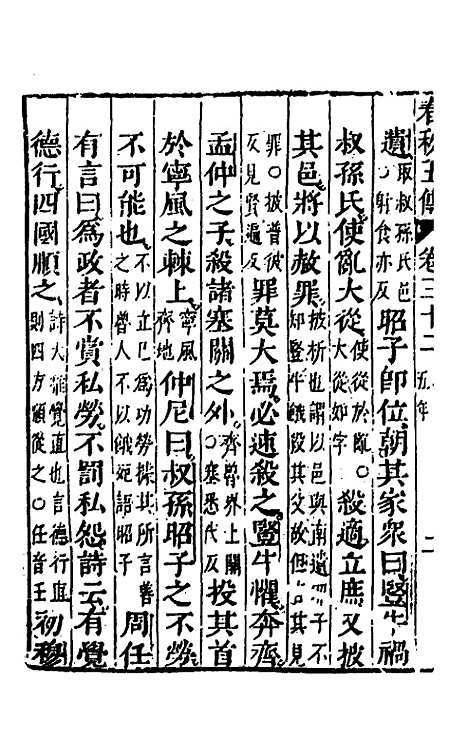 春秋左傳 卷三十二 五年 二
遺取叔孫氏邑〇射食亦反昭子即位朝其家眾曰豎牛禍
叔孫氏使亂大從使從於亂〇大從如字殺適立庶又披
其邑將以赦罪披析也謂以邑與南遺昭子不知豎牛餓殺其父故但言其見
罪〇披普彼反見賢遍反罪莫大焉必速殺之豎牛懼奔齊
孟仲之子殺諸塞關之外齊魯界上關〇塞悉代反投其首
於寧風之棘上寧風齊地仲尼曰叔孫昭子之不勞
不可能也不以立己為功勞據其所言善之時魯人不以餓死語昭子周任
有言曰為政者不賞私勞不罰私怨詩云有覺
德行四國順之詩大雅覺直也言德行直則四方順從之〇任音壬初穆